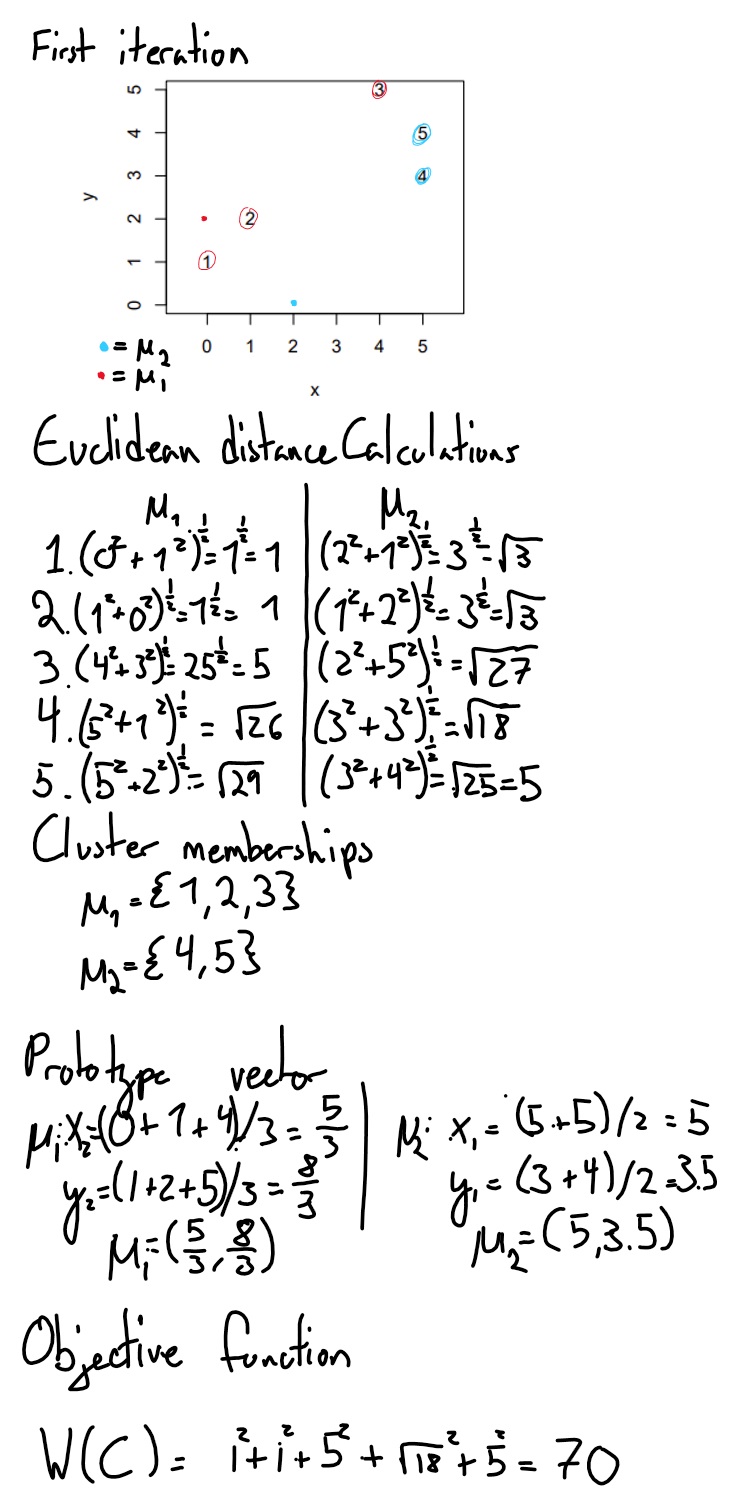 First iteration
5
4
3
2
1
0
y
3
5
4
2
1
0 1 2 3 4 5
x
• = μ₂
• = μ₁
Euclidean distance Calculations
μ₁ | μ₂
1. (0² + 1²)^½ = 1^½ = 1 | (2² + 1²)^½ = 3^½ = √3
2. (1² + 0²)^½ = 1^½ = 1 | (1² + 2²)^½ = 3^½ = √3
3. (4² + 3²)^½ = 25^½ = 5 | (2² + 5²)^½ = √27
4. (5² + 1²)^½ = √26 | (3² + 3²)^½ = √18
5. (5² + 2²)^½ = √29 | (3² + 4²)^½ = √25 = 5
Cluster memberships
μ₁ = {1, 2, 3}
μ₂ = {4, 5}
Prototype vector
μ₁: x₂ = (0 + 1 + 4)/3 = 5/3 | μ₂: x₁ = (5 + 5)/2 = 5
y₂ = (1 + 2 + 5)/3 = 8/3 | y₁ = (3 + 4)/2 = 3.5
μ₁ = (5/3, 8/3) | μ₂ = (5, 3.5)
Objective function
W(C) = 1² + 1² + 5² + √18² + 5² = 70